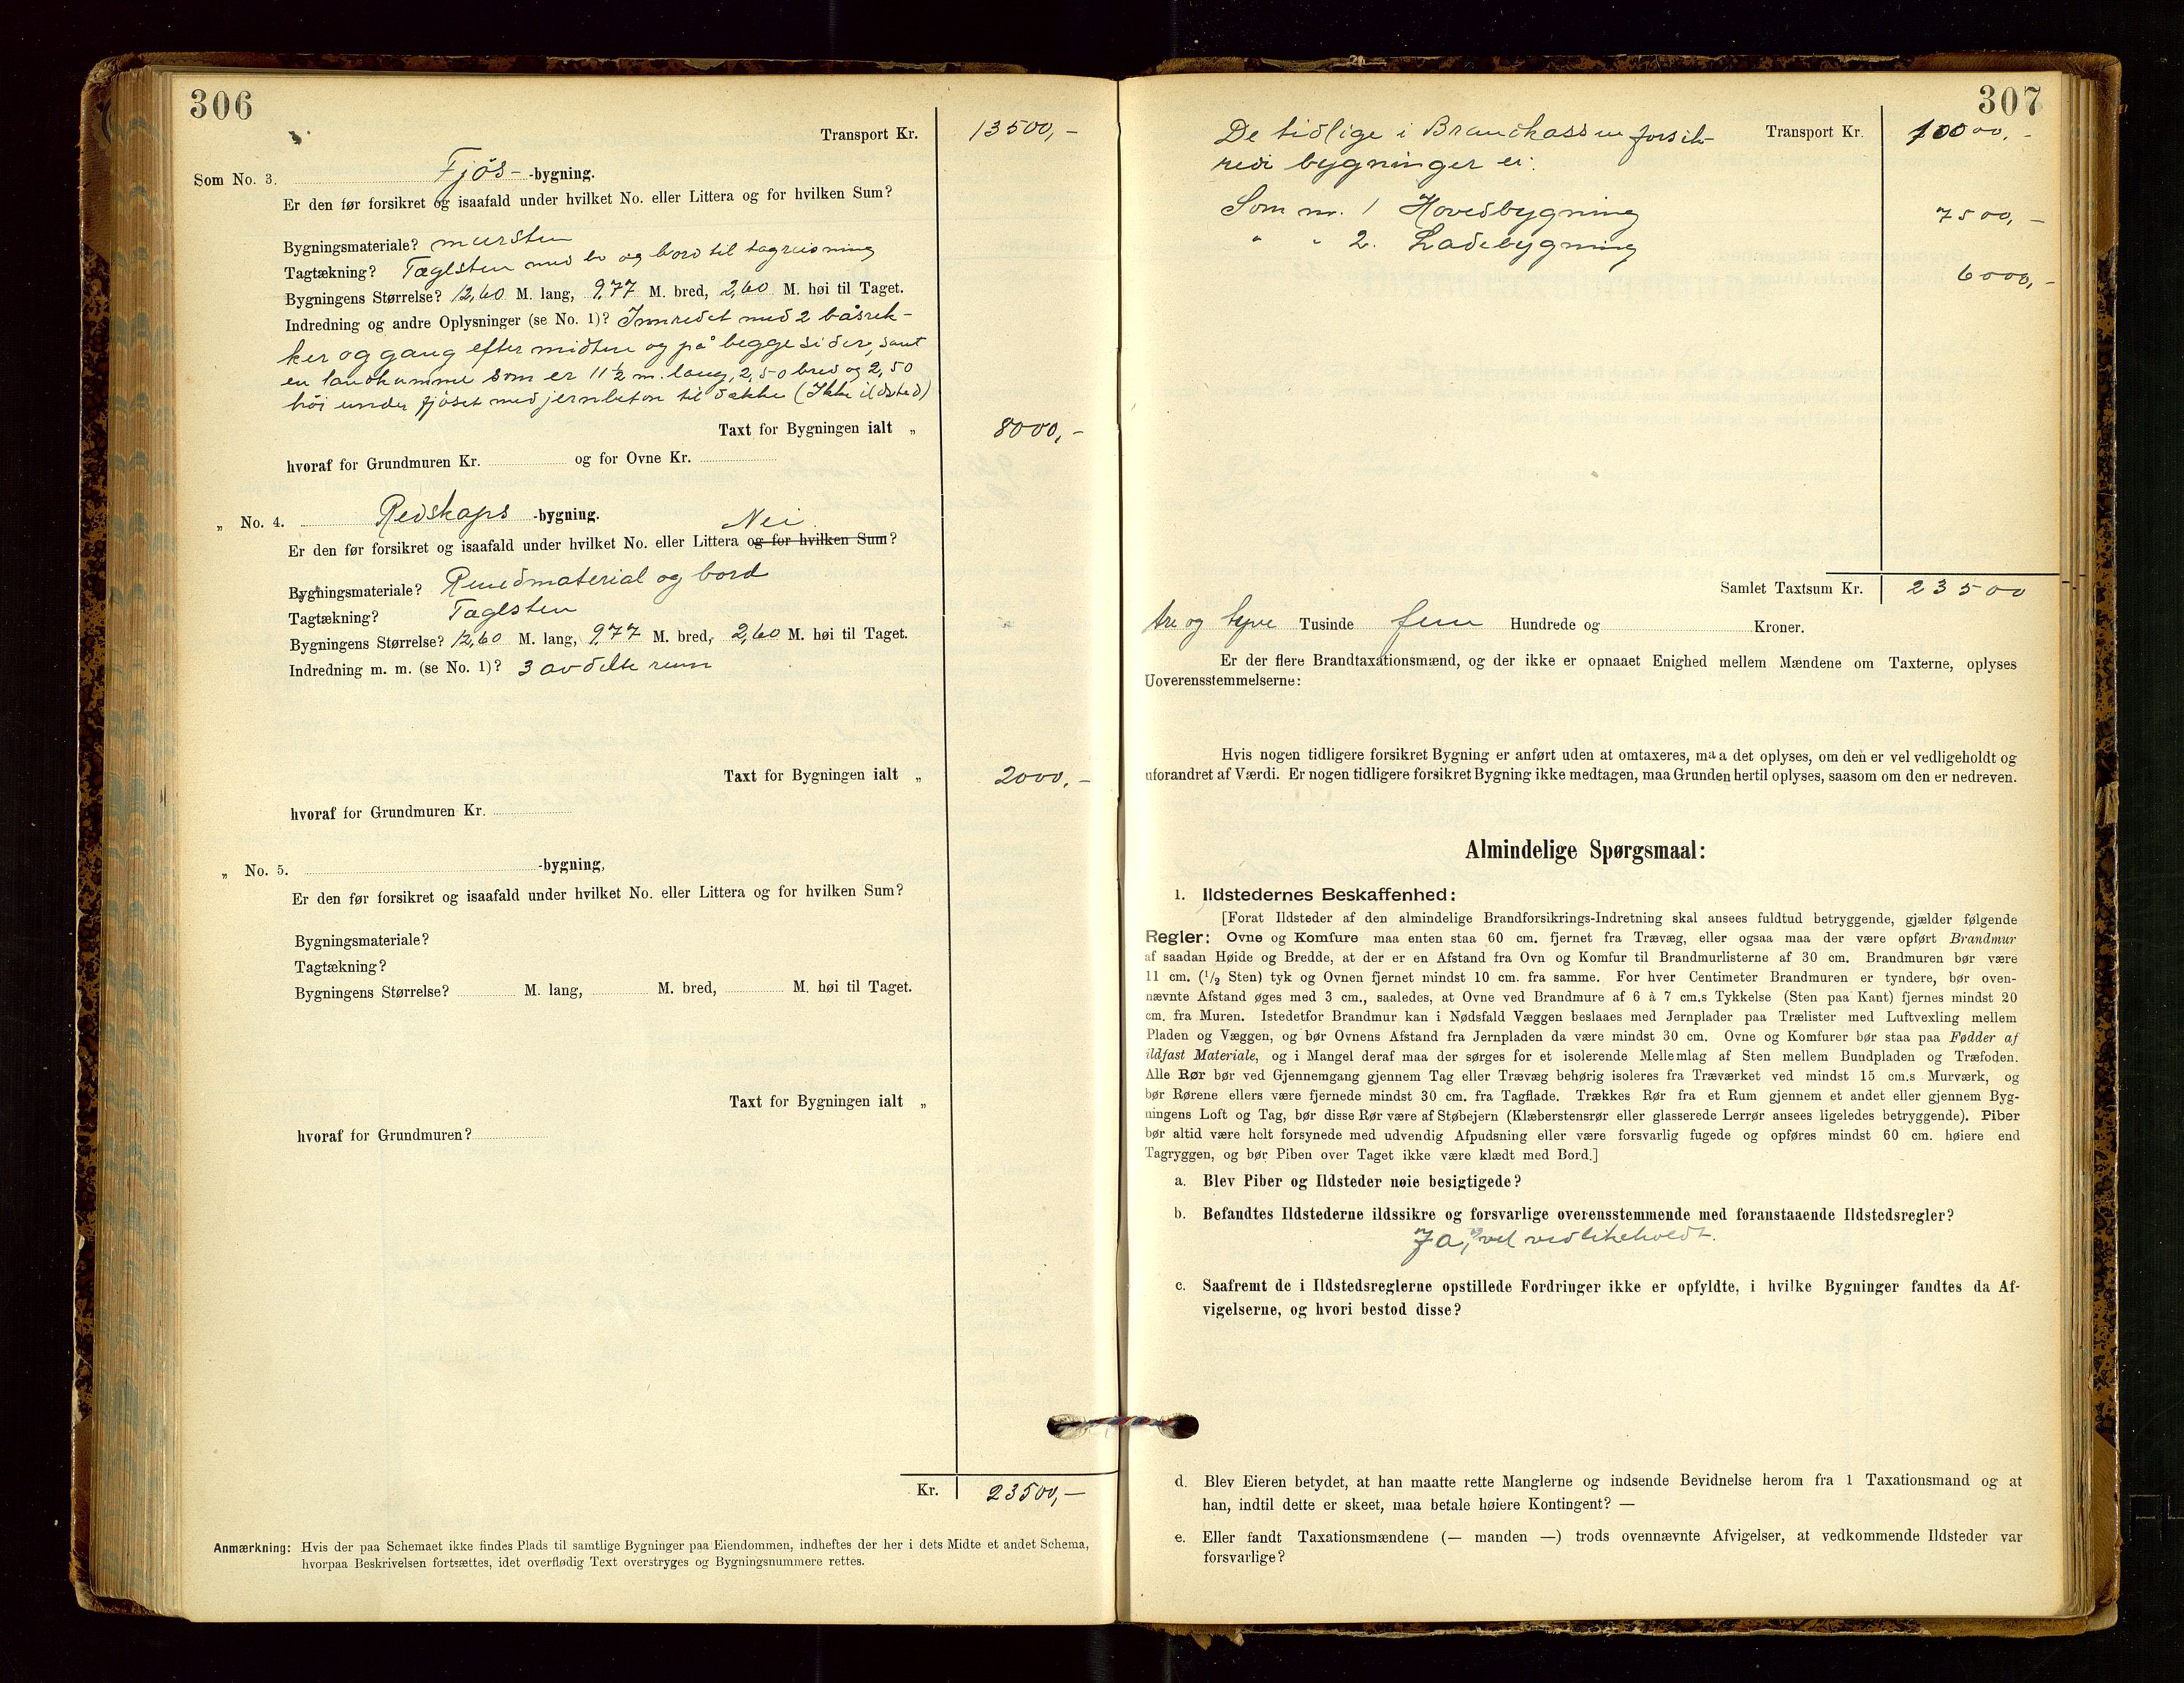 306
Transport Kr. 13500,-
Som No. 3. Fjös- -bygning.
Er den før forsikret og isaafald under hvilket No. eller Littera og for hvilken Sum?
Bygningsmateriale? mursten
Tagtækning? Taglsten med lo og bord til tagreisning
Bygningens Størrelse? 12,60 M. lang, 9,77 M. bred, 2,60 M. høi til Taget.
Indredning og andre Oplysninger (se No. 1)? Innredet med 2 båsrek-
ker og gang efter midten og på begge sider, samt
en landkumme som er 11½ m. lang, 2,50 bred og 2,50
höi under fjöset med jernbeton til dække (Ikke ildsted)
Taxt for Bygningen ialt „ 8000,-
hvoraf for Grundmuren Kr. og for Ovne Kr.
„ No. 4. Redskaps -bygning.
Nei
Er den før forsikret og isaafald under hvilket No. eller Littera og for hvilken Sum?
Bygningsmateriale? material og bord
Tagtækning? Taglsten
Bygningens Størrelse? 12,60 M. lang, 9,77 M. bred, 2,60 M. høi til Taget.
Indredning m. m. (se No. 1)? 3 avdelte rum
Taxt for Bygningen ialt „ 2000,-
hvoraf for Grundmuren Kr.
„ No. 5. -bygning,
Er den før forsikret og isaafald under hvilket No. eller Littera og for hvilken Sum?
Bygningsmateriale?
Tagtækning?
Bygningens Størrelse? M. lang, M. bred, M. høi til Taget.
Taxt for Bygningen ialt „
hvoraf for Grundmuren?
Kr. 23500,-
Anmærkning: Hvis der paa Schemaet ikke findes Plads til samtlige Bygninger paa Eiendommen, indheftes der her i dets Midte et andet Schema,
hvorpaa Beskrivelsen fortsættes, idet overflødig Text overstryges og Bygningsnummere rettes.
307
De tidlige i Brandkassen forsik- Transport Kr. 10000,-
redi bygninger er:
Som nr. 1 Hovedbygning 7500,-
" " 2. Ladebygning 6000,-
Samlet Taxtsum Kr. 23500
tre og tyve Tusinde fem Hundrede og Kroner.
Er der flere Brandtaxationsmænd, og der ikke er opnaaet Enighed mellem Mændene om Taxterne, oplyses
Uoverensstemmelserne:
Hvis nogen tidligere forsikret Bygning er anført uden at omtaxeres, maa det oplyses, om den er vel vedligeholdt og
uforandret af Værdi. Er nogen tidligere forsikret Bygning ikke medtagen, maa Grunden hertil oplyses, saasom om den er nedreven.
Almindelige Spørgsmaal:
1. Ildstedernes Beskaffenhed:
[Forat Ildsteder af den almindelige Brandforsikrings-Indretning skal ansees fuldtud betryggende, gjælder følgende
Regler: Ovne og Komfure maa enten staa 60 cm. fjernet fra Trævæg, eller ogsaa maa der være opført Brandmur
af saadan Høide og Bredde, at der er en Afstand fra Ovn og Komfur til Brandmurlisterne af 30 cm. Brandmuren bør være
11 cm. (1/2 Sten) tyk og Ovnen fjernet mindst 10 cm. fra samme. For hver Centimeter Brandmuren er tyndere, bør oven-
nævnte Afstand øges med 3 cm., saaledes, at Ovne ved Brandmure af 6 à 7 cm.s Tykkelse (Sten paa Kant) fjernes mindst 20
cm. fra Muren. Istedetfor Brandmur kan i Nødsfald Væggen beslaaes med Jernplader paa Trælister med Luftvexling mellem
Pladen og Væggen, og bør Ovnens Afstand fra Jernpladen da være mindst 30 cm. Ovne og Komfurer bør staa paa Fødder af
ildfast Materiale, og i Mangel deraf maa der sørges for et isolerende Mellemlag af Sten mellem Bundpladen og Træfoden.
Alle Rør bør ved Gjennemgang gjennem Tag eller Trævæg behørig isoleres fra Træværket ved mindst 15 cm.s Murværk, og
bør Rørene ellers være fjernede mindst 30 cm. fra Tagflade. Trækkes Rør fra et Rum gjennem et andet eller gjennem Byg-
ningens Loft og Tag, bør disse Rør være af Støbejern (Klæberstensrør eller glasserede Lerrør ansees ligeledes betryggende). Piber
bør altid være helt forsynede med udvendig Afpudsning eller være forsvarlig fugede og opføres mindst 60 cm. høiere end
Tagryggen, og bør Piben over Taget ikke være klædt med Bord.]
a. Blev Piber og Ildsteder nøie besigtigede?
b. Befandtes Ildstederne ildssikre og forsvarlige overensstemmende med foranstaaende Ildstedsregler?
Ja, vel vedlikeholdt.
c. Saafremt de i Ildstedsreglerne opstillede Fordringer ikke er opfyldte, i hvilke Bygninger fandtes da Af-
vigelserne, og hvori bestod disse?
d. Blev Eieren betydet, at han maatte rette Manglerne og indsende Bevidnelse herom fra 1 Taxationsmand og at
han, indtil dette er skeet, maa betale høiere Kontingent? —
e. Eller fandt Taxationsmændene (— manden —) trods ovennævnte Afvigelser, at vedkommende Ildsteder var
forsvarlige?